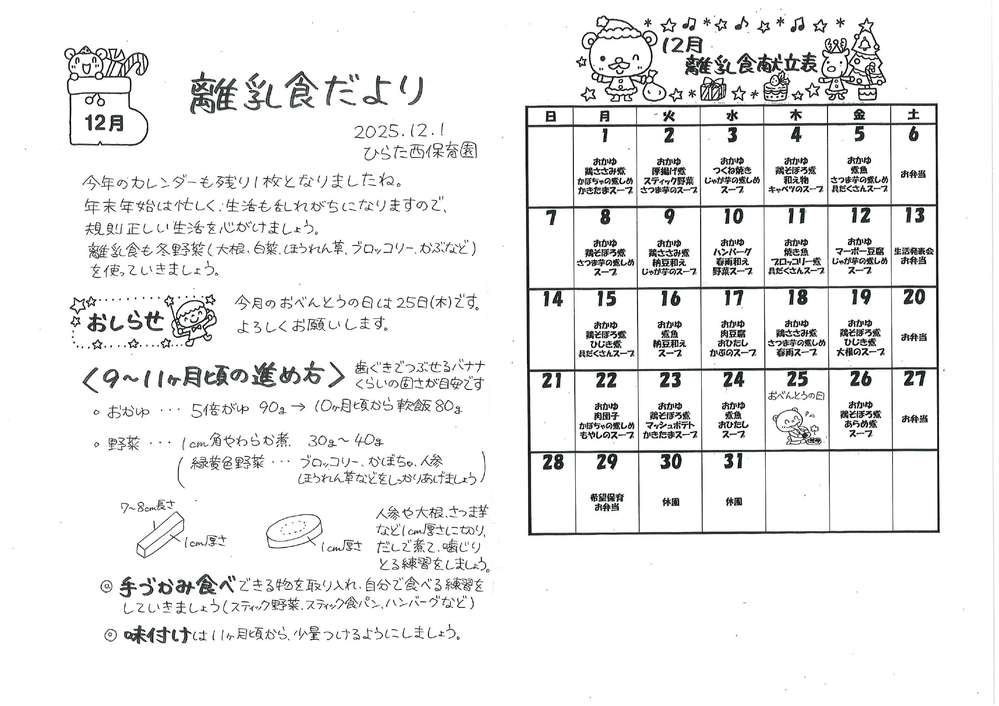 12月
離乳食だより
2025.12.1
ひらた西保育園
今年のカレンダーも残り1枚となりましたね。
年末年始は忙しく、生活も乱れがちになりますので、
規則正しい生活を心がけましょう。
離乳食も冬野菜(大根、白菜、ほうれん草、ブロッコリー、かぶなど)
を使っていきましょう。
おしらせ
今月のおべんとうの日は25日(木)です。
よろしくお願いします。
〈9〜11ヶ月頃の進め方〉
歯ぐきでつぶせるバナナ
くらいの固さが目安です
。おかゆ … 5倍がゆ 90g → 10ヶ月頃から軟飯80g
。野菜 … 1cm角やわらか煮 30g〜40g
(緑黄色野菜 … ブロッコリー、かぼちゃ、人参
ほうれん草などをしっかりあげましょう)
7〜8cm長さ
1cm厚さ
1cm厚さ
人参や大根、さつま芋
など1cm厚さに切り、
だしで煮て、噛じり
とる練習をしましょう。
◎ 手づかみ食べできる物を取り入れ、自分で食べる練習を
していきましょう(スティック野菜、スティック食パン、ハンバーグなど)
◎ 味付けは11ヶ月頃から、少量つけるようにしましょう。
12月
離乳食献立表
日 月 火 水 木 金 土
1 2 3 4 5 6
おかゆ おかゆ おかゆ おかゆ おかゆ
鶏ささみ煮 厚揚げ煮 つくね焼き 鶏そぼろ煮 煮魚 お弁当
かぼちゃの煮しめ スティック野菜 じゃが芋の煮しめ 和え物 さつま芋の煮しめ
かきたまスープ さつま芋のスープ スープ キャベツのスープ 具だくさんスープ
7 8 9 10 11 12 13
おかゆ おかゆ おかゆ おかゆ おかゆ 生活発表会
鶏そぼろ煮 鶏ささみ煮 ハンバーグ 焼き魚 マーボー豆腐 お弁当
さつま芋の煮しめ 納豆和え 春雨和え ブロッコリー煮 じゃが芋の煮しめ
スープ じゃが芋のスープ 野菜スープ 具だくさんスープ スープ
14 15 16 17 18 19 20
おかゆ おかゆ おかゆ おかゆ おかゆ
鶏そぼろ煮 煮魚 肉豆腐 鶏ささみ煮 鶏そぼろ煮 お弁当
ひじき煮 納豆和え おひたし さつま芋の煮しめ ひじき煮
具だくさんスープ スープ かぶのスープ 春雨スープ 大根のスープ
21 22 23 24 25 26 27
おかゆ おかゆ おかゆ おべんとうの日 おかゆ
肉団子 鶏そぼろ煮 煮魚 鶏そぼろ煮 お弁当
かぼちゃの煮しめ マッシュポテト おひたし あらめ煮
もやしのスープ かきたまスープ スープ スープ
28 29 30 31
希望保育 休園 休園
お弁当